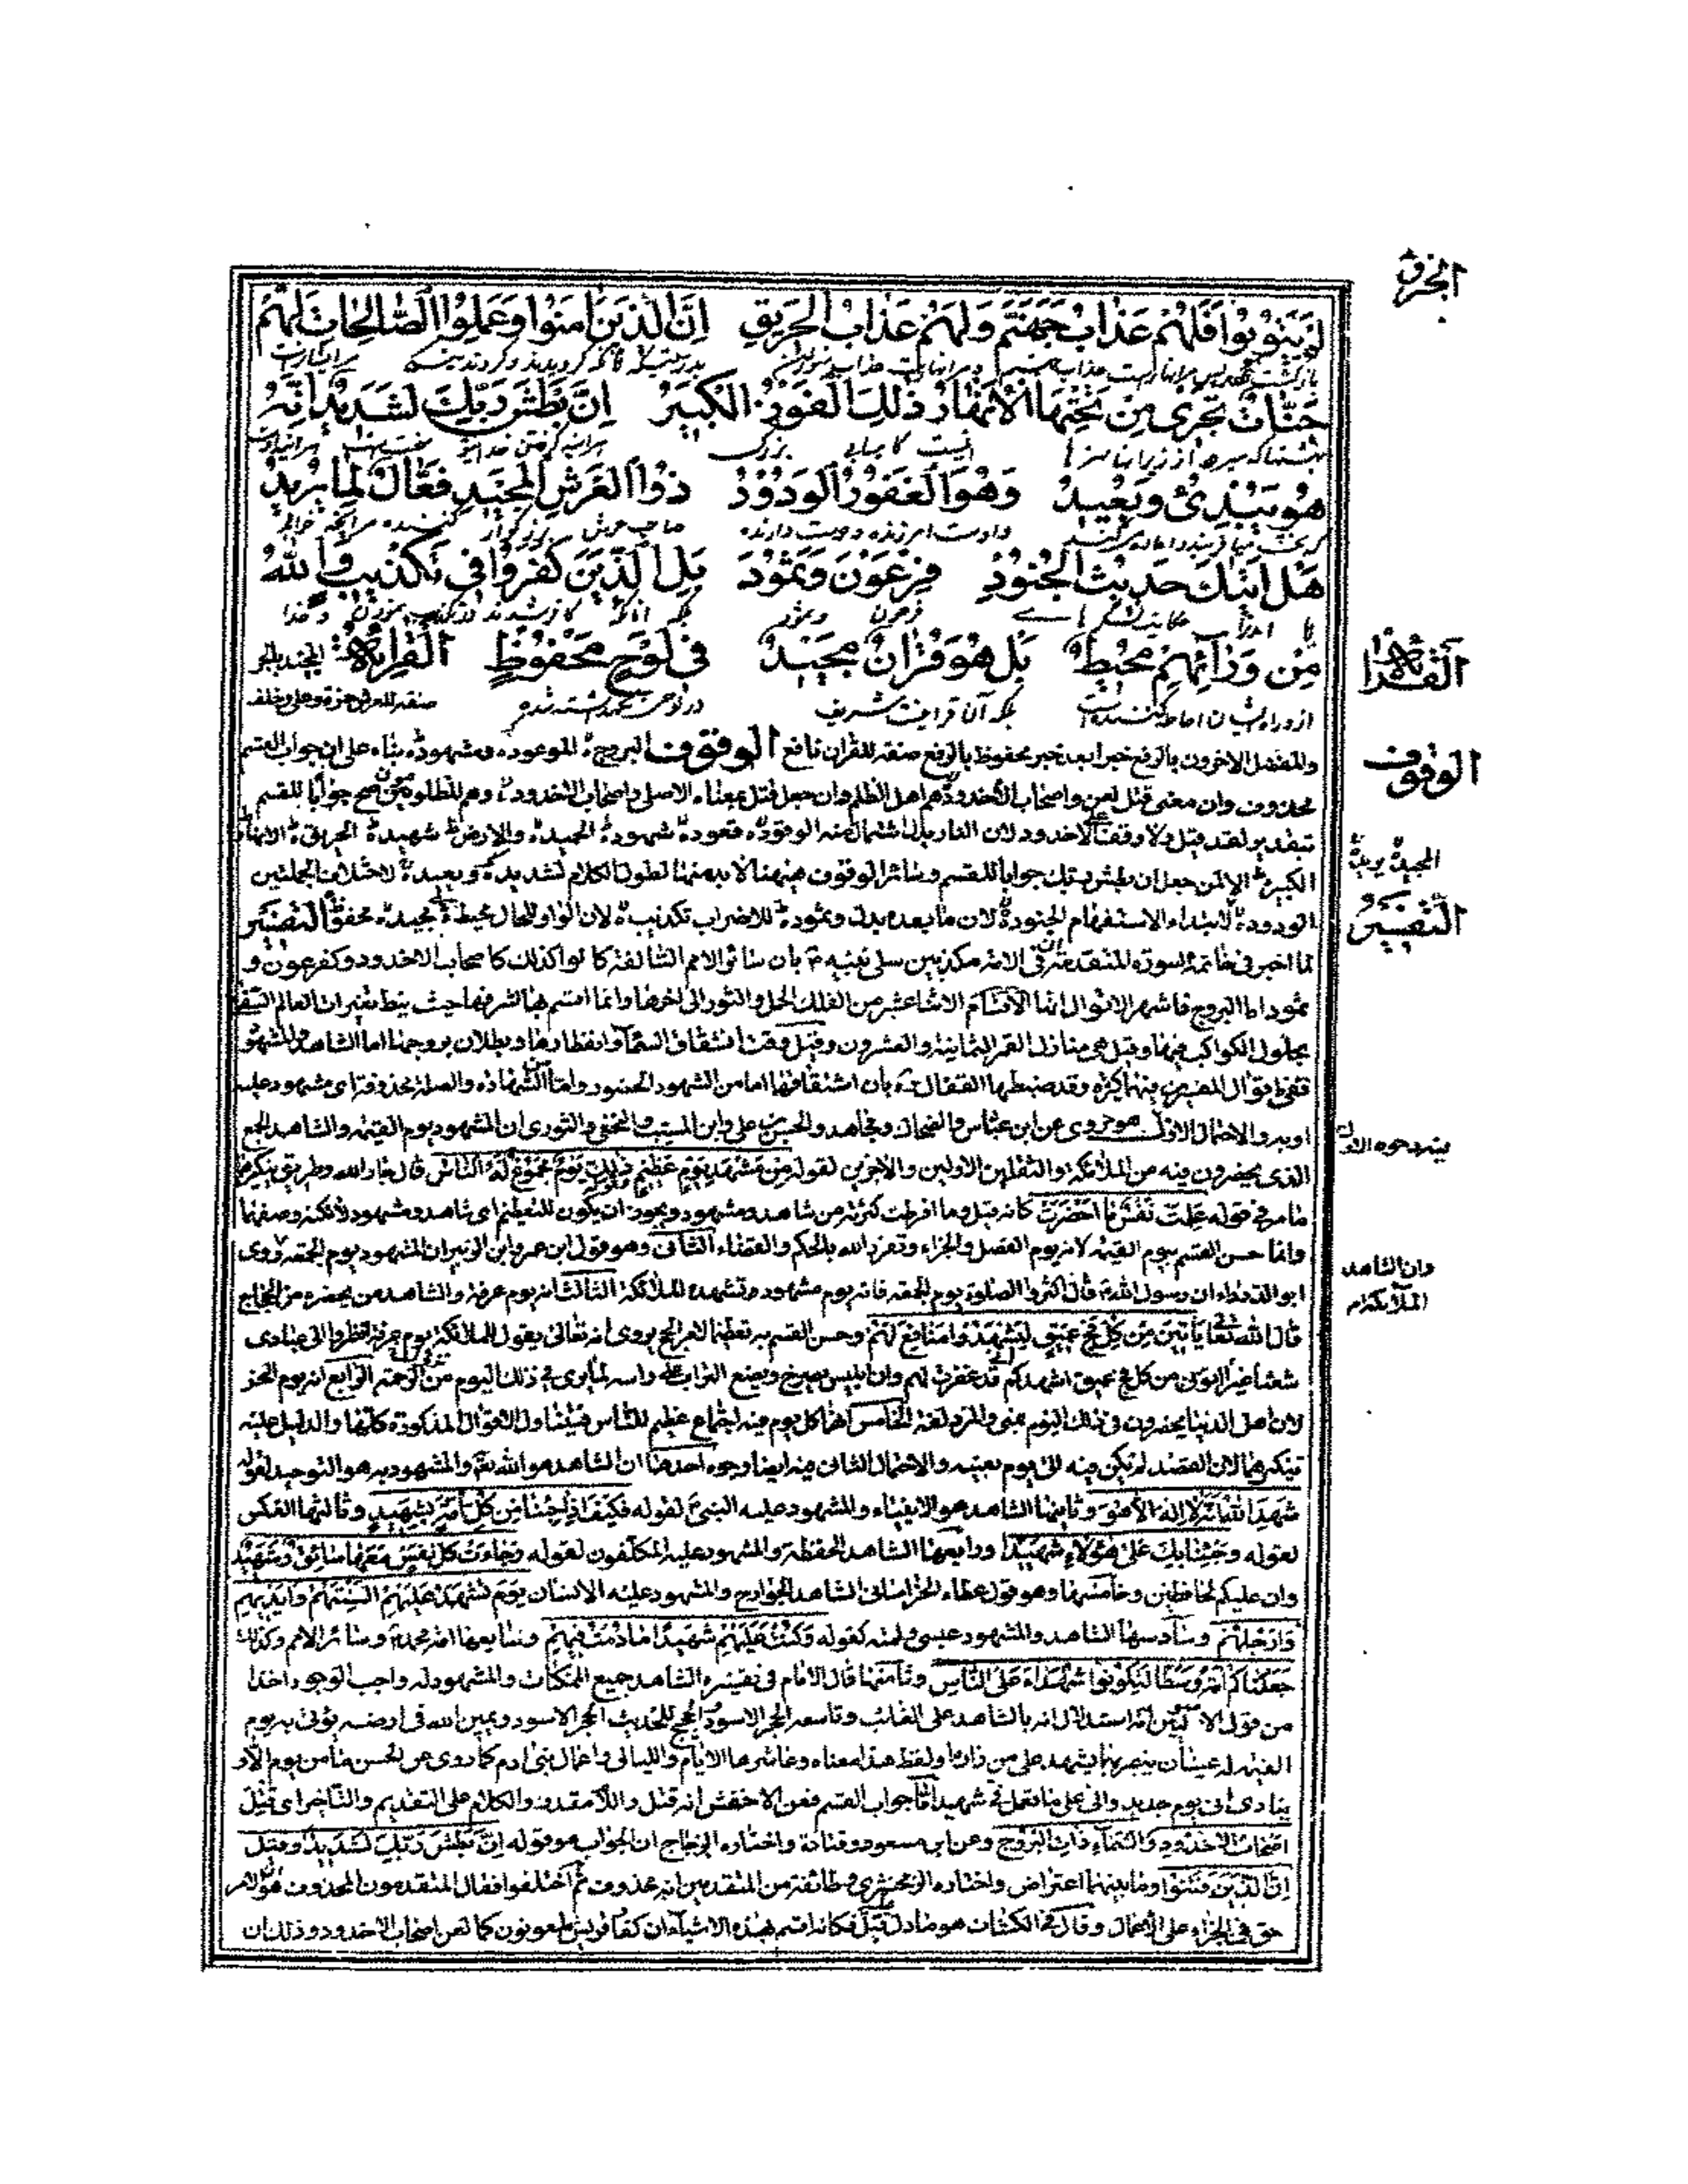 الجزء
لم يتوبوا فلهم عذاب جهنم ولهم عذاب الحريق ان الذين امنوا وعملوا الصالحات لهم
جنات تجرى من تحتها الانهار ذلك الفوز الكبير ان بطش ربك لشديد انه
هو يبدئ ويعيد وهو الغفور الودود ذو العرش المجيد فعال لما يريد
هل اتيك حديث الجنود فرعون وثمود بل الذين كفروا فى تكذيب والله
من ورائهم محيط بل هو قران مجيد فى لوح محفوظ القراءة المجيد بالجر
بلكه آن قرانيست شريف
صفة للعرش حمزة وعلى وخلف
القراءة
والمفضل الاخرون بالرفع خبرا بعد خبر محفوظ بالرفع صفة للقران نافع الوقوف البروج الموعود ومشهود بناء على ان جواب القسم
الوقوف
محذوف وان معنى قتل لعن واصحاب الأخدود هم اهل الظلم وان جعل قتل بمعناه الاصلى واصحاب الاخدود هم المظلومون صح جوابا للقسم
بتقدير لقد قتل ولا وقف على الاخدود لان النار بدل اشتمال منه الوقود قعود شهود الحميد والارض شهيد الحريق الانهار
الكبير الا لمن جعل ان بطش ربك جوابا للقسم وسائر الوقوف بينهما لا بد منها لطول الكلام لشديد ويعيد لاختلاف الجملتين
المجيد يريد
الودود لابتداء الاستفهام الجنود لان ما بعده بدل وثمود للاضراب تكذيب لان الواو للحال محيط مجيد محفوظ التفسير
التفسير
لما اخبر فى خاتمة السورة المتقدمة ان فى الامة مكذبين سلى نبيه بان سائر الامم السالفة كانوا كذلك كاصحاب الاخدود وكفرعون و
ثمود اما البروج فاشهر الاقوال انها الاقسام الاثنا عشر من الفلك الحمل والثور الى اخرها وانما اقسم بها لشرفها حيث نيط تغيرات العالم السفلى
بحلول الكواكب فيها وقيل هى منازل القمر الثمانية والعشرون وقيل وقت انشقاق السماء وانفطارها وبطلان بروجها اما الشاهد والمشهود
ففى اقوال المفسرين فيهما كثرة وقد ضبطها القفال بان اشتقاقهما اما من الشهود الحضور واما من الشهادة والصلة محذوفة اى مشهود عليه
او به والاحتمال الاول هو مروى عن ابن عباس والضحاك ومجاهد والحسن بن على وابن المسيب والنخعى والثورى ان المشهود يوم القيمة والشاهد الجمع
فيه وجوه الاول
الذى يحضرون فيه من الملائكة والثقلين الاولين والاخرين لقوله من مشهد يوم عظيم ذلك يوم مجموع له الناس قال جار الله وطريق تنكيرهما
ما مر فى قوله علمت نفس ما احضرت كانه قيل وما افرطت كثرته من شاهد ومشهود ويجوز ان يكون للتعظيم اى شاهد ومشهود لا يكتنه وصفهما
وانما حسن القسم بيوم القيمة لانه يوم الفصل والجزاء وتفرد الله بالحكم والقضاء الثانى وهو قول ابن عمر وابن الزبير ان المشهود يوم الجمعة روى
وان الشاهد
ابو الدرداء ان رسول الله قال اكثروا الصلوة يوم الجمعة فانه يوم مشهود تشهده الملائكة الثالث انه يوم عرفة والشاهد من يحضره من الحجاج
الملائكة
قال الله تعالى يأتين من كل فج عميق ليشهدوا منافع لهم وحسن القسم به تعظيما لامر الحج يروى انه تعالى يقول للملائكة يوم عرفة انظروا الى عبادى
شعثا غبرا اتون من كل فج عميق اشهدكم انى قد غفرت لهم وان ابليس يصرخ ويضع التراب على راسه لما يرى فى ذلك اليوم من نزول الرحمة الرابع انه يوم النحر
لان اهل الدنيا يحضرون فى ذلك اليوم بمنى والمزدلفة الخامس انهما كل يوم فيه اجتماع عظيم للناس فيتناول الاقوال المذكورة كلها والدليل عليه
تنكيرهما لان القصد لم يكن فيه الى يوم بعينه والاحتمال الثانى فيه ايضا وجوه احدها ان الشاهد هو الله تعالى والمشهود به هو التوحيد لقوله
شهد الله انه لا اله الا هو وثانيها الشاهد هو الانبياء والمشهود عليه النبى لقوله فكيف اذا جئنا من كل امة بشهيد وثالثها العكس
لقوله وجئنا بك على هؤلاء شهيدا ورابعها الشاهد الحفظة والمشهود عليه المكلفون لقوله وجاءت كل نفس معها سائق وشهيد
وان عليكم لحافظين وخامسها وهو قول عطاء الخراسانى الشاهد الجوارح والمشهود عليه الانسان يوم تشهد عليهم السنتهم وايديهم
وارجلهم وسادسها الشاهد والمشهود عيسى وامته كقوله وكنت عليهم شهيدا ما دمت فيهم وسابعها امة محمد وسائر الامم وكذلك
جعلناكم امة وسطا لتكونوا شهداء على الناس وثامنها قال الامام فى تفسيره الشاهد جميع الممكنات والمشهود له واجب الوجود اخذا
من قول الاصوليين انه استدلال بالشاهد على الغائب وتاسعها الحجر الاسود والحجيج للحديث الحجر الاسود يمين الله فى ارضه يؤتى به يوم
القيمة له عينان يبصر بهما يشهد على من زاره او لفظ هذا معناه وعاشرها الايام والليالى واعمال بنى ادم كما روى عن الحسن ما من يوم الا و
ينادى انى يوم جديد وانى على ما تعمل فى شهيد اما جواب القسم فعن الاخفش انه قتل واللام مقدرة والكلام على التقديم والتاخير اى قتل
اصحاب الاخدود والسماء ذات البروج وعن ابن مسعود وقتادة واختاره الزجاج ان الجواب هو قوله ان بطش ربك لشديد وقيل
ان الذين فتنوا وما بينهما اعتراض واختاره الزمخشرى وطائفة من المتقدمين انه محذوف ثم اختلفوا فقال المتقدمون المحذوف هو ان الامر
حق فى الجزاء على الاعمال وقال فى الكشاف هو ما دل عليه قتل فكانه اقسم بهذه الاشياء ان كفار قريش ملعونون كما لعن اصحاب الاخدود وذلك ان